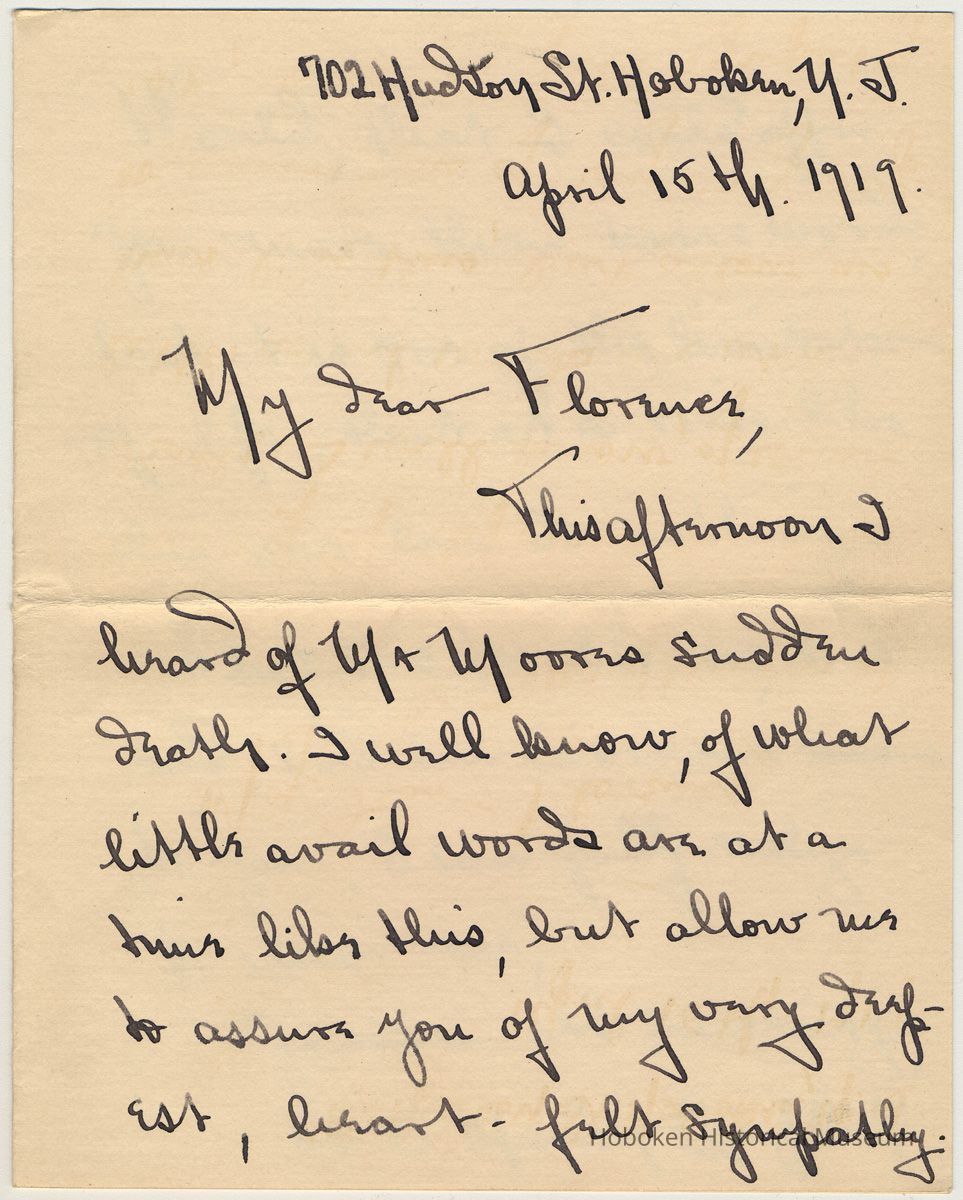 702 Hudson St. Hoboken, N. J.
April 15th. 1919.
My dear Florence,
This afternoon I
heard of Mr Moores sudden
death. I well know, of what
little avail words are at a
time like this, but allow me
to assure you of my very deep-
est, heart-felt sympathy.
Hoboken Historical Museum